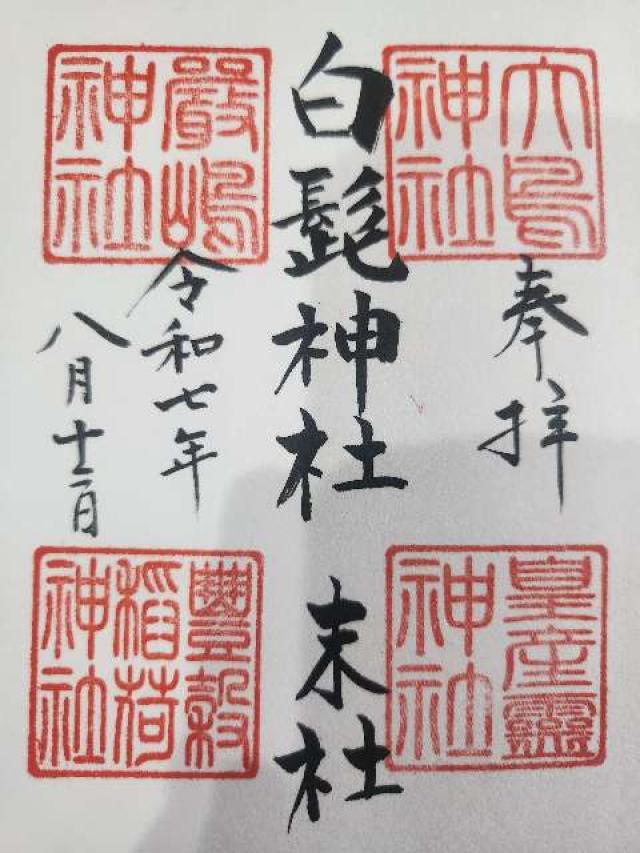 奉拝
大鳥神社
皇産靈神社
白髭神社 末社
嚴嶋神社
令和七年
八月十二日
豐穀稲荷神社